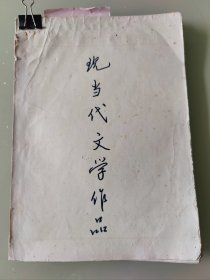 现当代文学作品